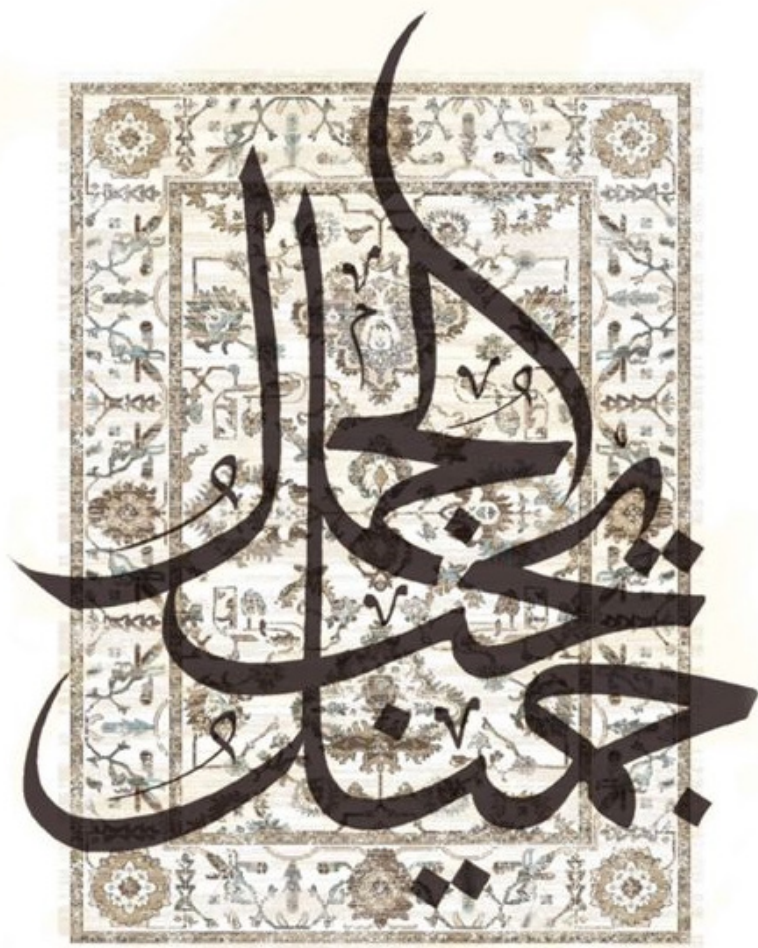 جميل
يحب
الجمال